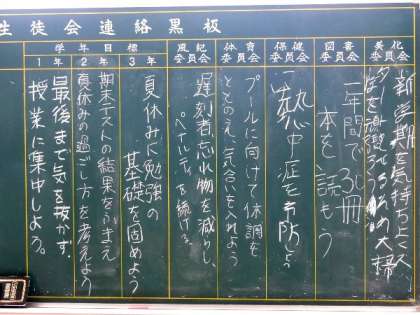 生徒会連絡黒板
美化委員会
新学期を気持ちよく
大掃
図書委員会
一年間で30冊
本を読もう
保健委員会
熱中症を予防しよう
体育委員会
プールに向けて体調を
ととのえ、気合いを入れよう
風紀委員会
遅刻者、忘れ物を減らし、
ペナルティを続ける。
学年目標
3年
夏休みに勉強の
基礎を固めよう
2年
期末テストの結果をふまえ
夏休みの過ごし方を考えよう
1年
最後まで気を抜かず、
授業に集中しよう。